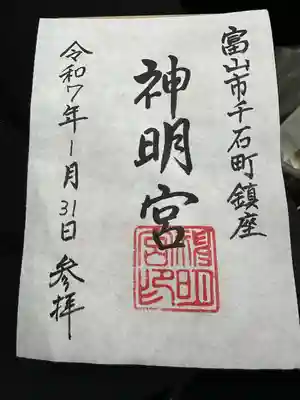 富山市千石町鎮座
神明宮
神明宮印
令和7年1月31日参拝